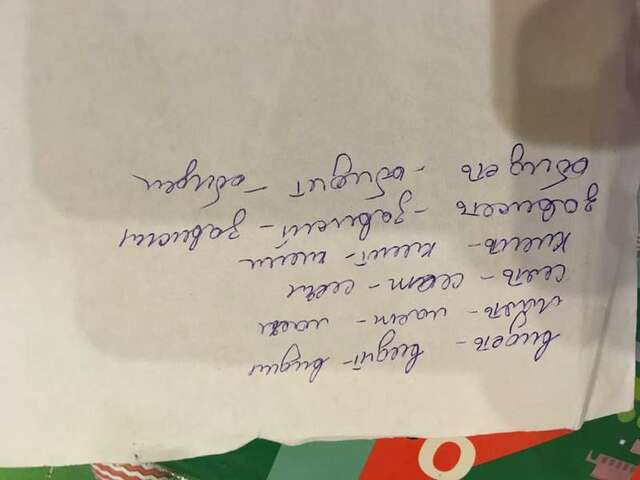 видеть - видит - видил
лаять - лает - лаял
сеять - сеат - сеял
клеить - клеит - клеил
зависеть - зависит - зависил
обидеть - обидит - обидел